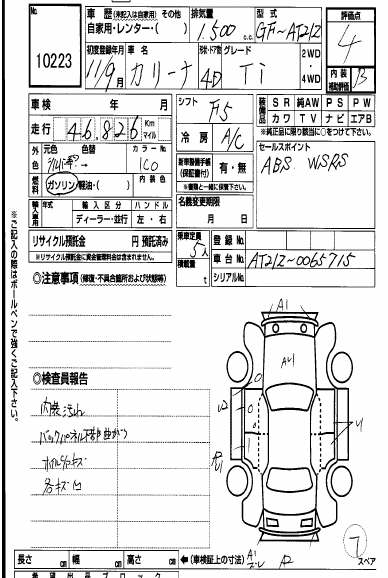 No.
10223
車歴 (未記入は自家用) その他
自家用・レンター・( )
排気量
1.500 c.c.
型式
GF-AT212
評価点
4
初度登録年月
11/9月
車名
カリーナ
形状・ドア数
4D
グレード
Ti
2WD
・
4WD
内装
補助評価
B
車検 年 月
走行 46.826 Km
マイル
シフト F5
冷房 A/C
装備品
SR 純AW PS PW
カワ TV ナビ エアB
※純正品に限り該当に○をつけて下さい。
外色
元色 色替
シルバー →
カラーNo.
1C0
燃料
ガソリン/軽油・( )
内装色
新車整備手帳
(保証書付)
有・無
※書類と一緒に保管下さい。
セールスポイント
ABS WSRS
輸入車用
年式 輸入区分 ハンドル
ディーラー・並行 左・右
名義変更期限
月 日
リサイクル預託金 円 預託済み
※リサイクル預託金に資金管理料金は含まれません。
乗車定員 5人
積載量 t
登録No.
車台No. AT212-0065715
シリアルNo.
◎注意事項 (修復・不具合箇所および状態等)
※ご記入の際はボールペンで強くご記入下さい。
◎検査員報告
内装汚れ
バックパネル下部曲がり
各キズ凹
A1
AU1
U2
U1
7
スペア
長さ cm 幅 cm 高さ cm ←(車検証上の寸法)
A1
A2